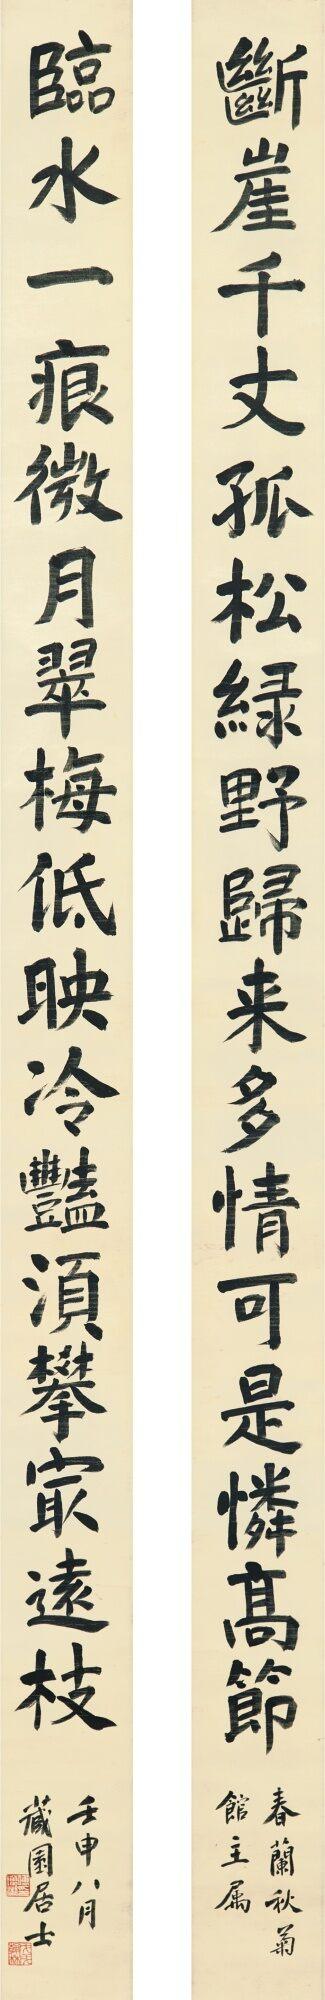 斷崖千丈孤松綠野歸来多情可是憐高節
春蘭秋菊
館主属
臨水一痕微月翠梅低映冷豔須攀㝡遠枝
壬申八月
藏園居士